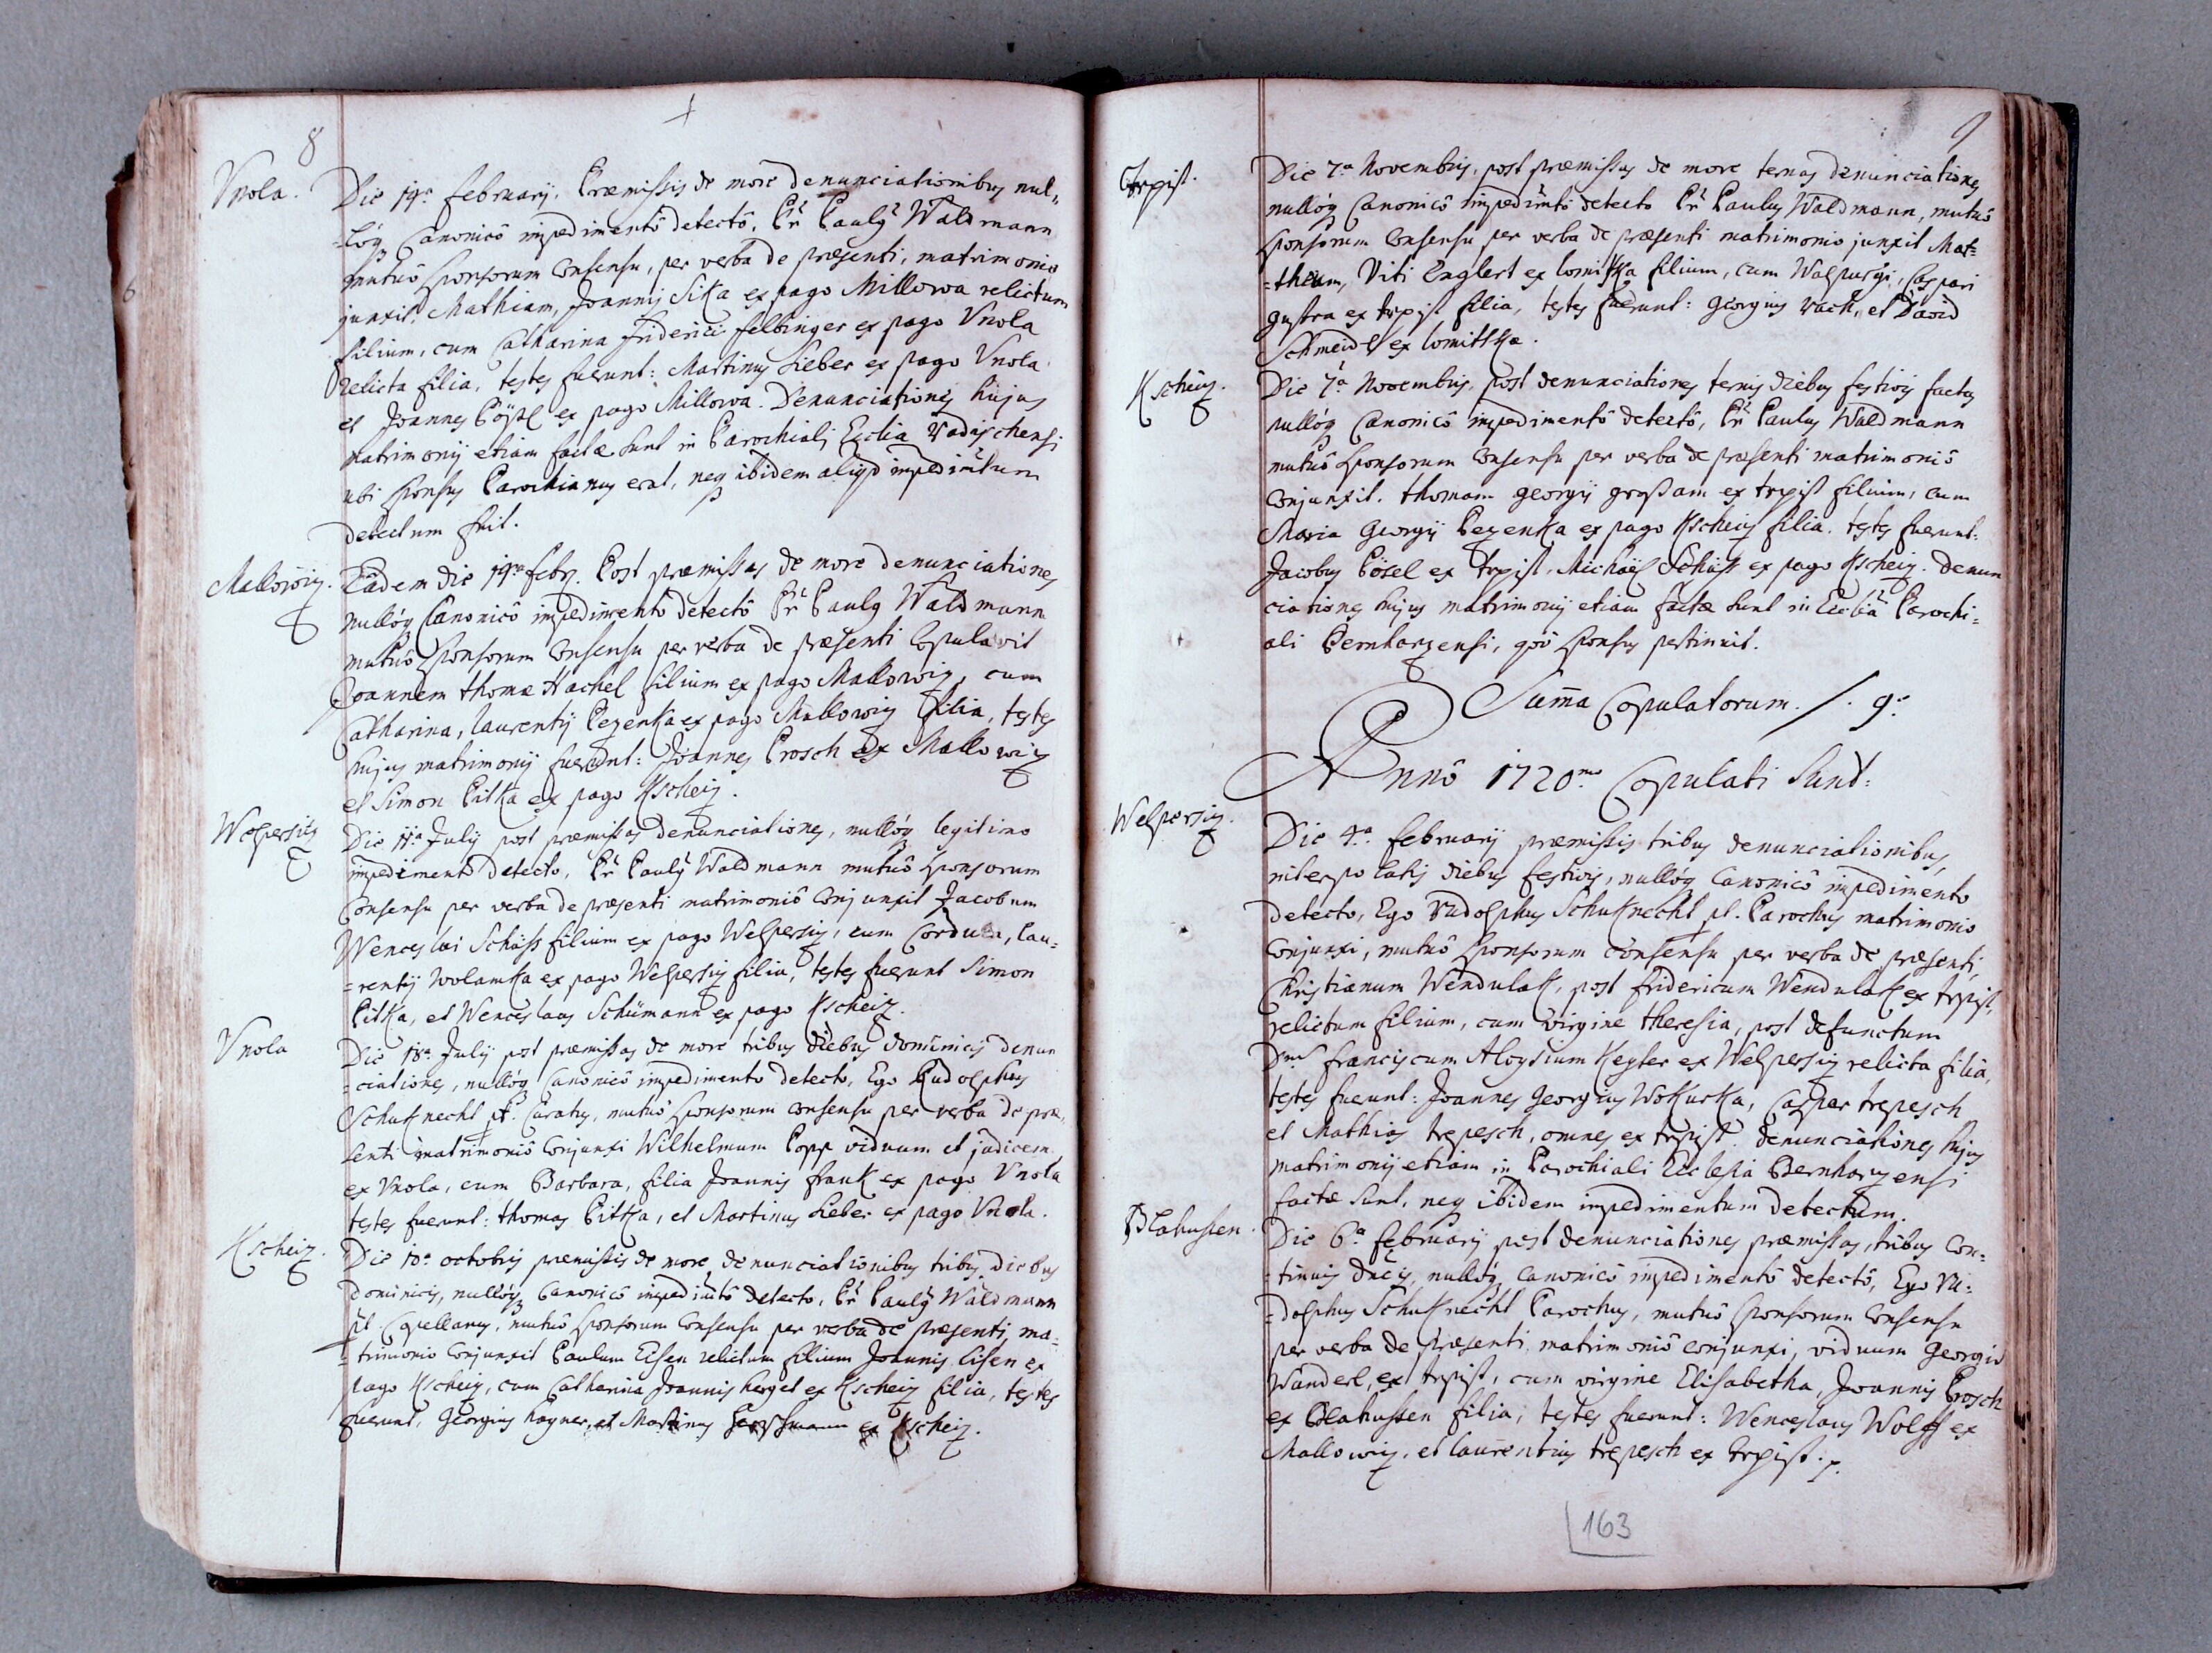 8
Vnola.
Die 19na february. Præmissis de more denunciationibus nul=
=lóq Canonicô impedimentô detectô, Pr Paulq Waldmann
mutuô sponsorum Consensu, per verba de præsenti, matrimonio
junxit, Mathiam, Joannis Sika ex pago Millowa relictum
filium, cum Catharina Friderici felbinger ex pago Vnola
relicta filia, testes fuerunt: Martinus Lieber ex pago Vnola
et Joannes ex pago Millowa. Denunciationes hujus
matrimonij etiam factæ sunt in Parochiali Ecclia Radischensi
ubi sponsus Parochianus erat, neq ibidem aliqd impedimtum
detectum fuit.
Mallowiz.
Eadem die 19na febr. Post præmissas de more denunciationes
nullóq Canonicô impedimentô detectô Pr Paulq Waldmann
mutuô sponsorum Consensu per verba de præsenti Copulavit
Joannem thomæ Hachel filium ex pago Mallowiz, cum
Catharina, laurentij Pezenka ex pago Mallowiz filia, testes
hujus matrimonij fuerunt: Joannes Prosch ex Mallowiz
et Simon Pitka ex pago Kscheiz.
Welpersitz
Die 11a July post præmissas denunciationes, nullóq legitimo
impedimentô detecto, Pr Paulq Waldmann mutuô sponsorum
Consensu per verba de præsenti matrimoniô Conjunxit Jacobum
Wenceslai Schüss filium ex pago Welpersiz, cum Cordula, lau=
=rentij wolamka ex pago Welpersiz filia, testes fuerunt Simon
Pitka, et Wenceslaus Schümann ex pago Kscheiz.
Vnola
Die 18a July post præmissas de more tribus diebus dominicis denun
=ciationes, nullóq Canonicô impedimento detecto, Ego Rudolphus
Schuknecht pt. Curatus, mutuô sponsorum consensu per verba de præ=
senti matrimoniô Conjunxi Wilhelmum Popp viduum et judicem
ex Vnola, cum Barbara, filia Joannis frank ex pago Vnola
testes fuerunt: thomas Pitka, et Martinus Lieber ex pago Vnola.
Kscheiz.
Die 10a octobris præmissis de more denunciationibus tribus diebus
dominicis, nullóq Canonicô impedimtô detecto, Pr Paulq Waldmann
pt. Capellanus, mutuô sponsorum Consensu per verba de præsenti, ma=
=trimonio Conjunxit Paulum Eisen relictum filium Joannis Eisen ex
pago Kscheiz, cum Catharina Joannis hergel ex Kscheiz filia, testes
fuerunt, Georgius hagner, et Martinus ex Kscheiz.
9
trpist.
Die 7a Novembris, post præmissas de more ternas denunciationes
nullóq Canonicô impedimtô detecto Pr Paulus Waldmann, mutuô
sponsorum Consensu per verba de præsenti matrimonio junxit Mat=
=thæum, Viti Englert ex lomitka filium, cum Walpurgi, Caspari
gustra ex trpist filia, testes fuerunt: Georgius rach, et David
Schmeidl ex lomitka.
Kscheiz.
Die 7a Novembris, post denunciationes ternis diebus festivis factas
nullóq Canonicô impedimentô detectô, Pr Paulus Waldmann
mutuô sponsorum Consensu per verba de præsenti matrimoniô
Conjunxit. thomam georgij großam ex trpist filium, cum
Maria Georgij Pezenka ex pago Kscheiz filia. testes fuerunt:
Jacobus Pösel ex trpist, Michäel Schüss ex pago Kscheiz. Denun
ciationes hujus matrimonij etiam factæ sunt in Ecclia Parochi=
ali Bernharzensi, quô sponsus pertinuit.
Suma Copulatorum. /. 9.
Annô 1720mo Copulati Sunt:
Welpersiz.
Die 4a february præmissis tribus denunciationibus,
interpolatis diebus festivis, nullóq Canonicô impedimento
detecto, Ego Rudolphus Schuknecht pt. Parochus matrimonio
Conjunxi, mutuô sponsorum Consensu per verba de præsenti,
Christianum Wendulak, post fridericum Wendulak ex trpist,
relictum filium, cum virgine theresia, post defunctum
Dnum franciscum Aloysium Kegler ex Welpersiz relicta filia,
testes fuerunt: Joannes Georgius Wokurka, Casper trepesch
et Mathias trepesch, omnes ex trpist. Denunciationes hujus
matrimonij etiam in Parochiali Ecclesia Bernharzensi
factæ sunt, neq ibidem impedimentum detectum.
Blahussen.
Die 6a february post denunciationes præmissas, tribus Con=
=tinuis dncis, nullóq Canonicô impedimentô detectô, Ego Ru=
=dolphus Schuknecht Parochus, mutuô sponsorum Consensu
per verba de præsenti, matrimoniô conjunxi, viduum Georgiu
Wanderl, ex trpist, cum virgine Elisabetha, Joannis Prosch
ex Blahussen filia, testes fuerunt: Wenceslaus Wolff ex
Mallowiz, et laurentius trepesch ex trpist.
163